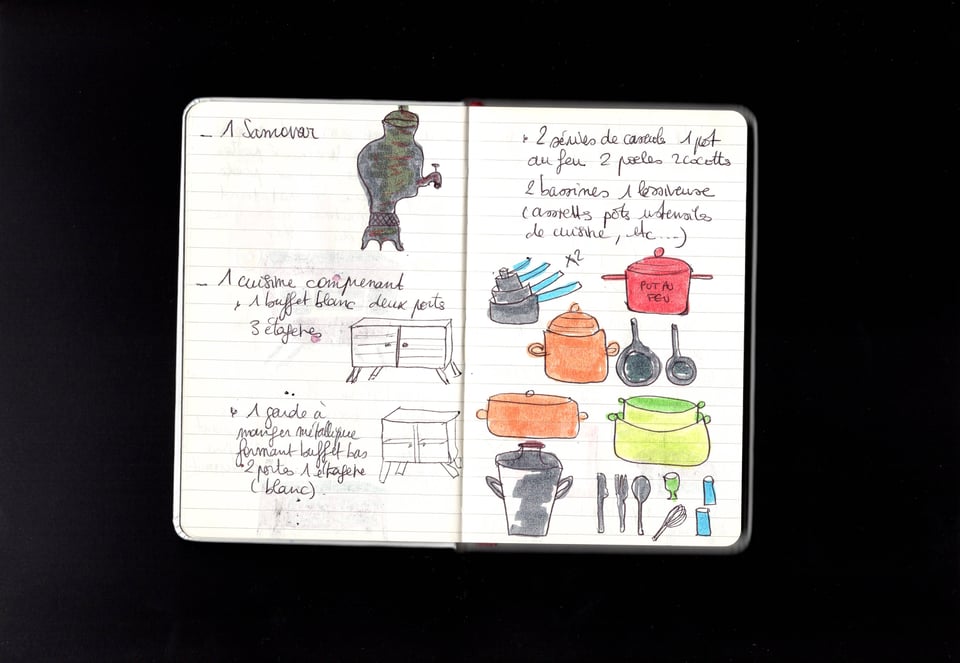 - 1 Samovar
- 1 cuisine comprenant
* 1 buffet blanc deux ports
3 étageres
* 1 garde à
manger métallique
formant buffet bas
2 portes 1 étagere
(blanc).
* 2 séries de casserols 1 pot
au feu 2 poeles 2 cocotts
2 bassines 1 lessiveuse
(assietts pots ustensiles
de cuisine, etc....)
x2
POT AU
FEU